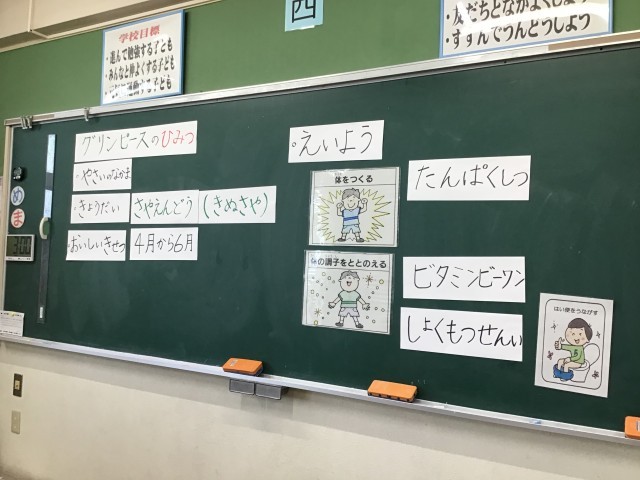 学校目標
・進んで勉強する子ども
・みんなと仲よくする子ども
西
・友だちとなかよくしよう
・すすんでうんどうしよう
グリンピースのひみつ
・やさいのなかま
・きょうだい さやえんどう (きぬさや)
・おいしいきせつ 4月から6月
・えいよう
体をつくる
たんぱくしつ
体の調子をととのえる
ビタミンビーワン
しょくもつせんい
はい便をうながす
め
ま